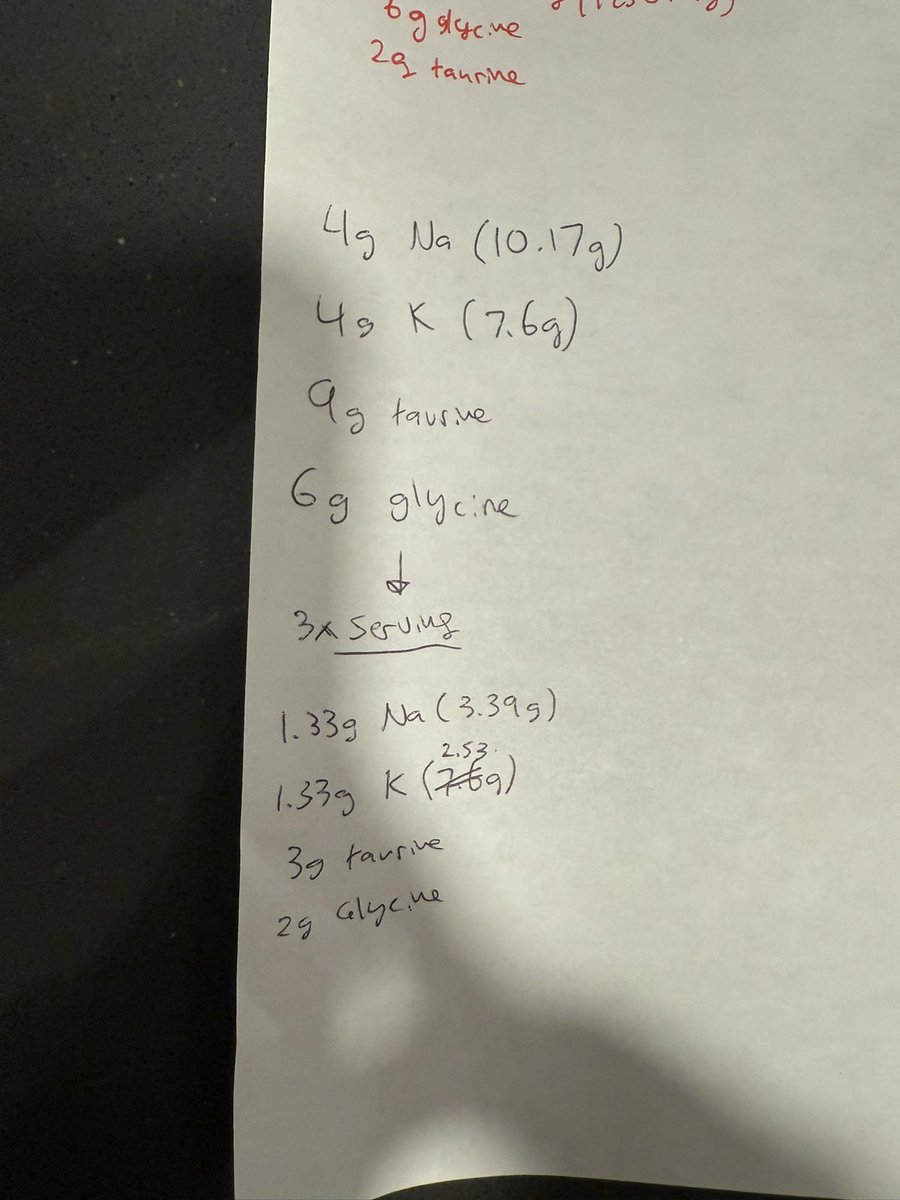 6g glycine
2g taurine
4g Na (10.17g)
4g K (7.6g)
9g taurine
6g glycine
↓
3x Serving
1.33g Na (3.39g)
2.53
1.33g K (7.6g)
3g taurine
2g Glycine